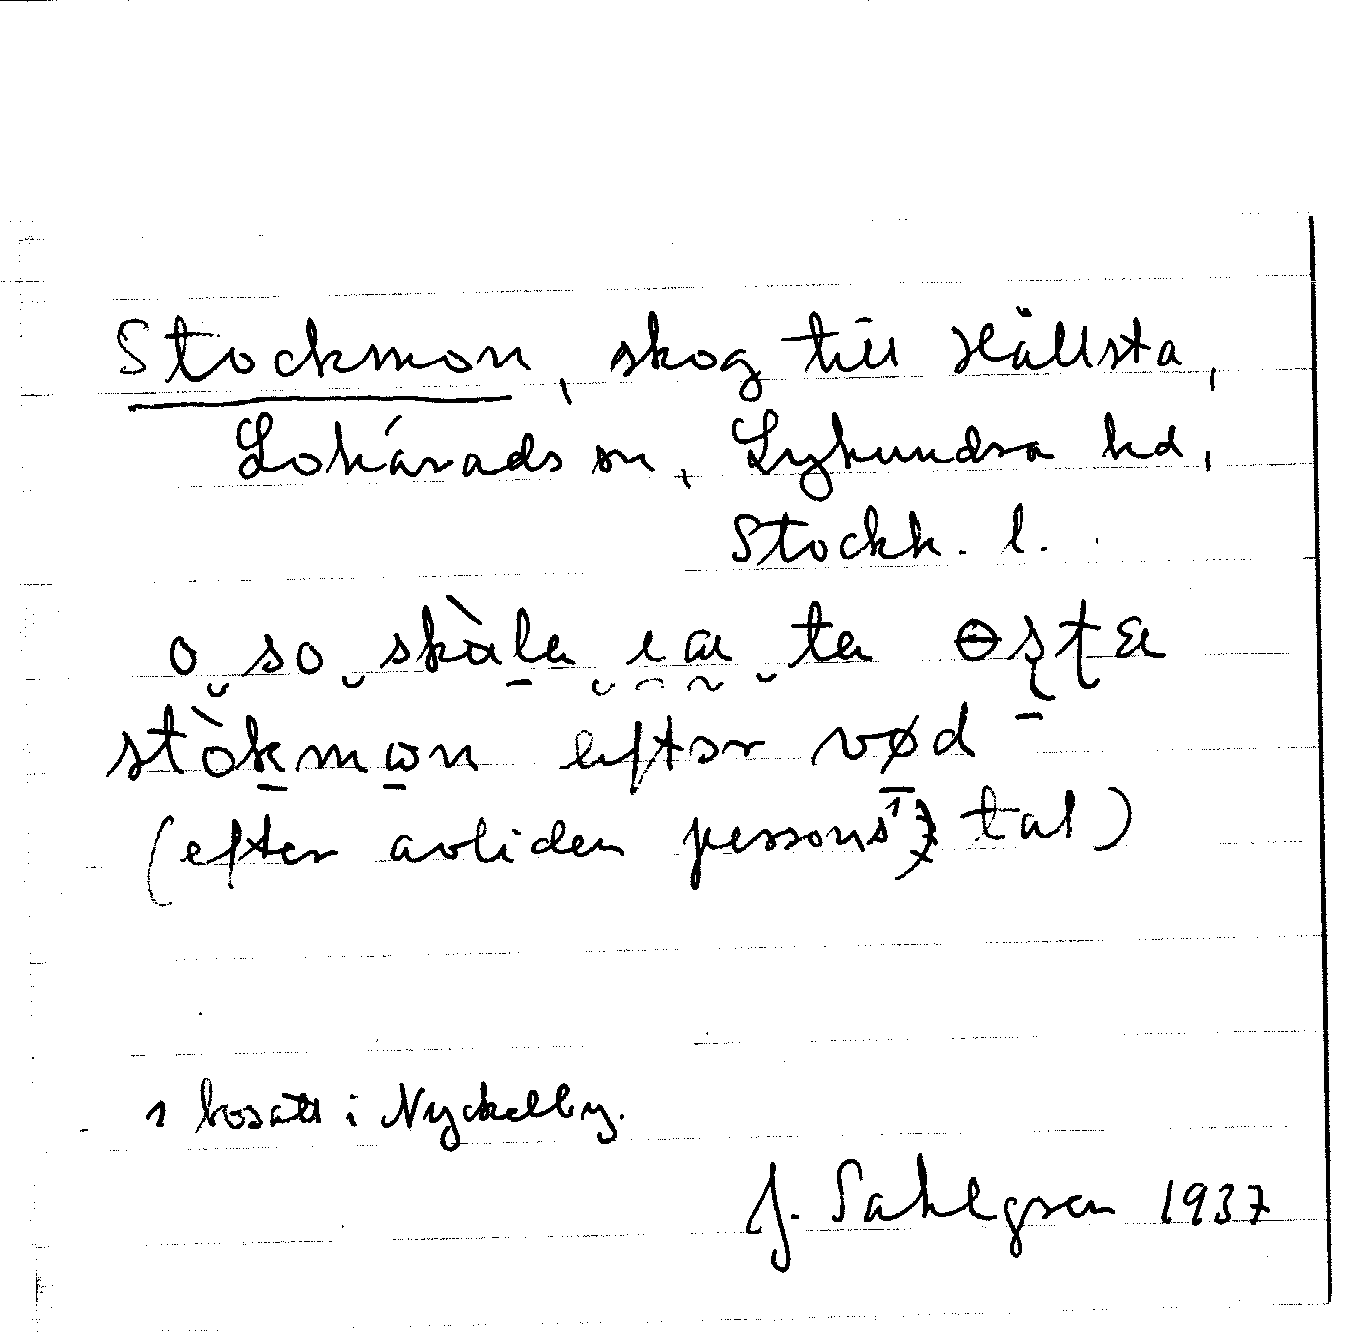 Stockmon, skog till Hällsta,
Lohärads sn, Lyhundra hd,
Stockh. l.
o so skàla ta
stòkmon eftər vød
(efter avliden persons¹) tal)
1 bosatt i Nyckelby.
J. Sahlgren 1937